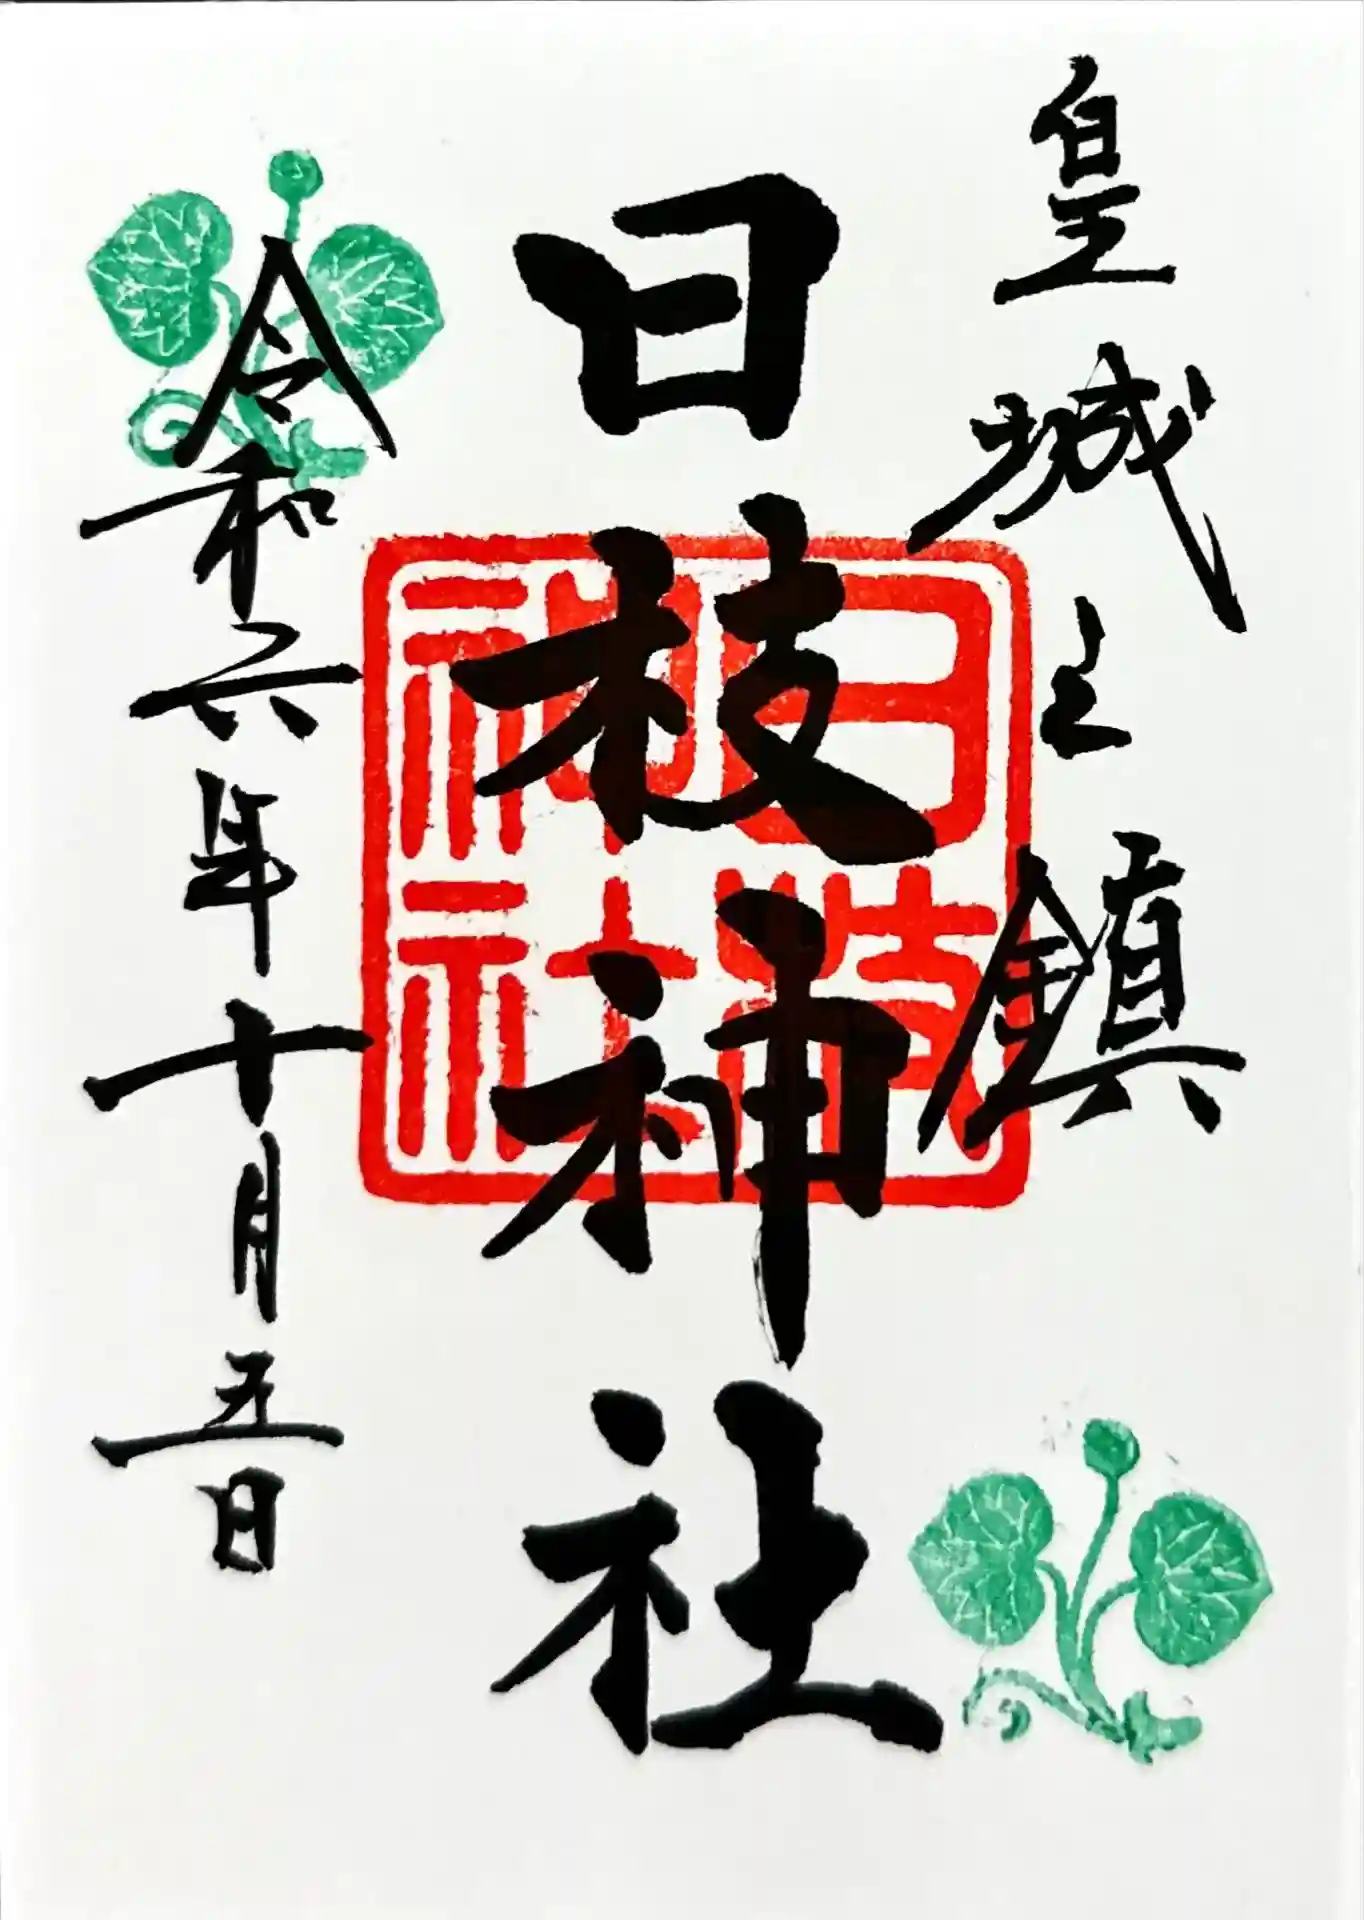 皇城之鎮
日枝神社
日枝神社
令和六年十月五日